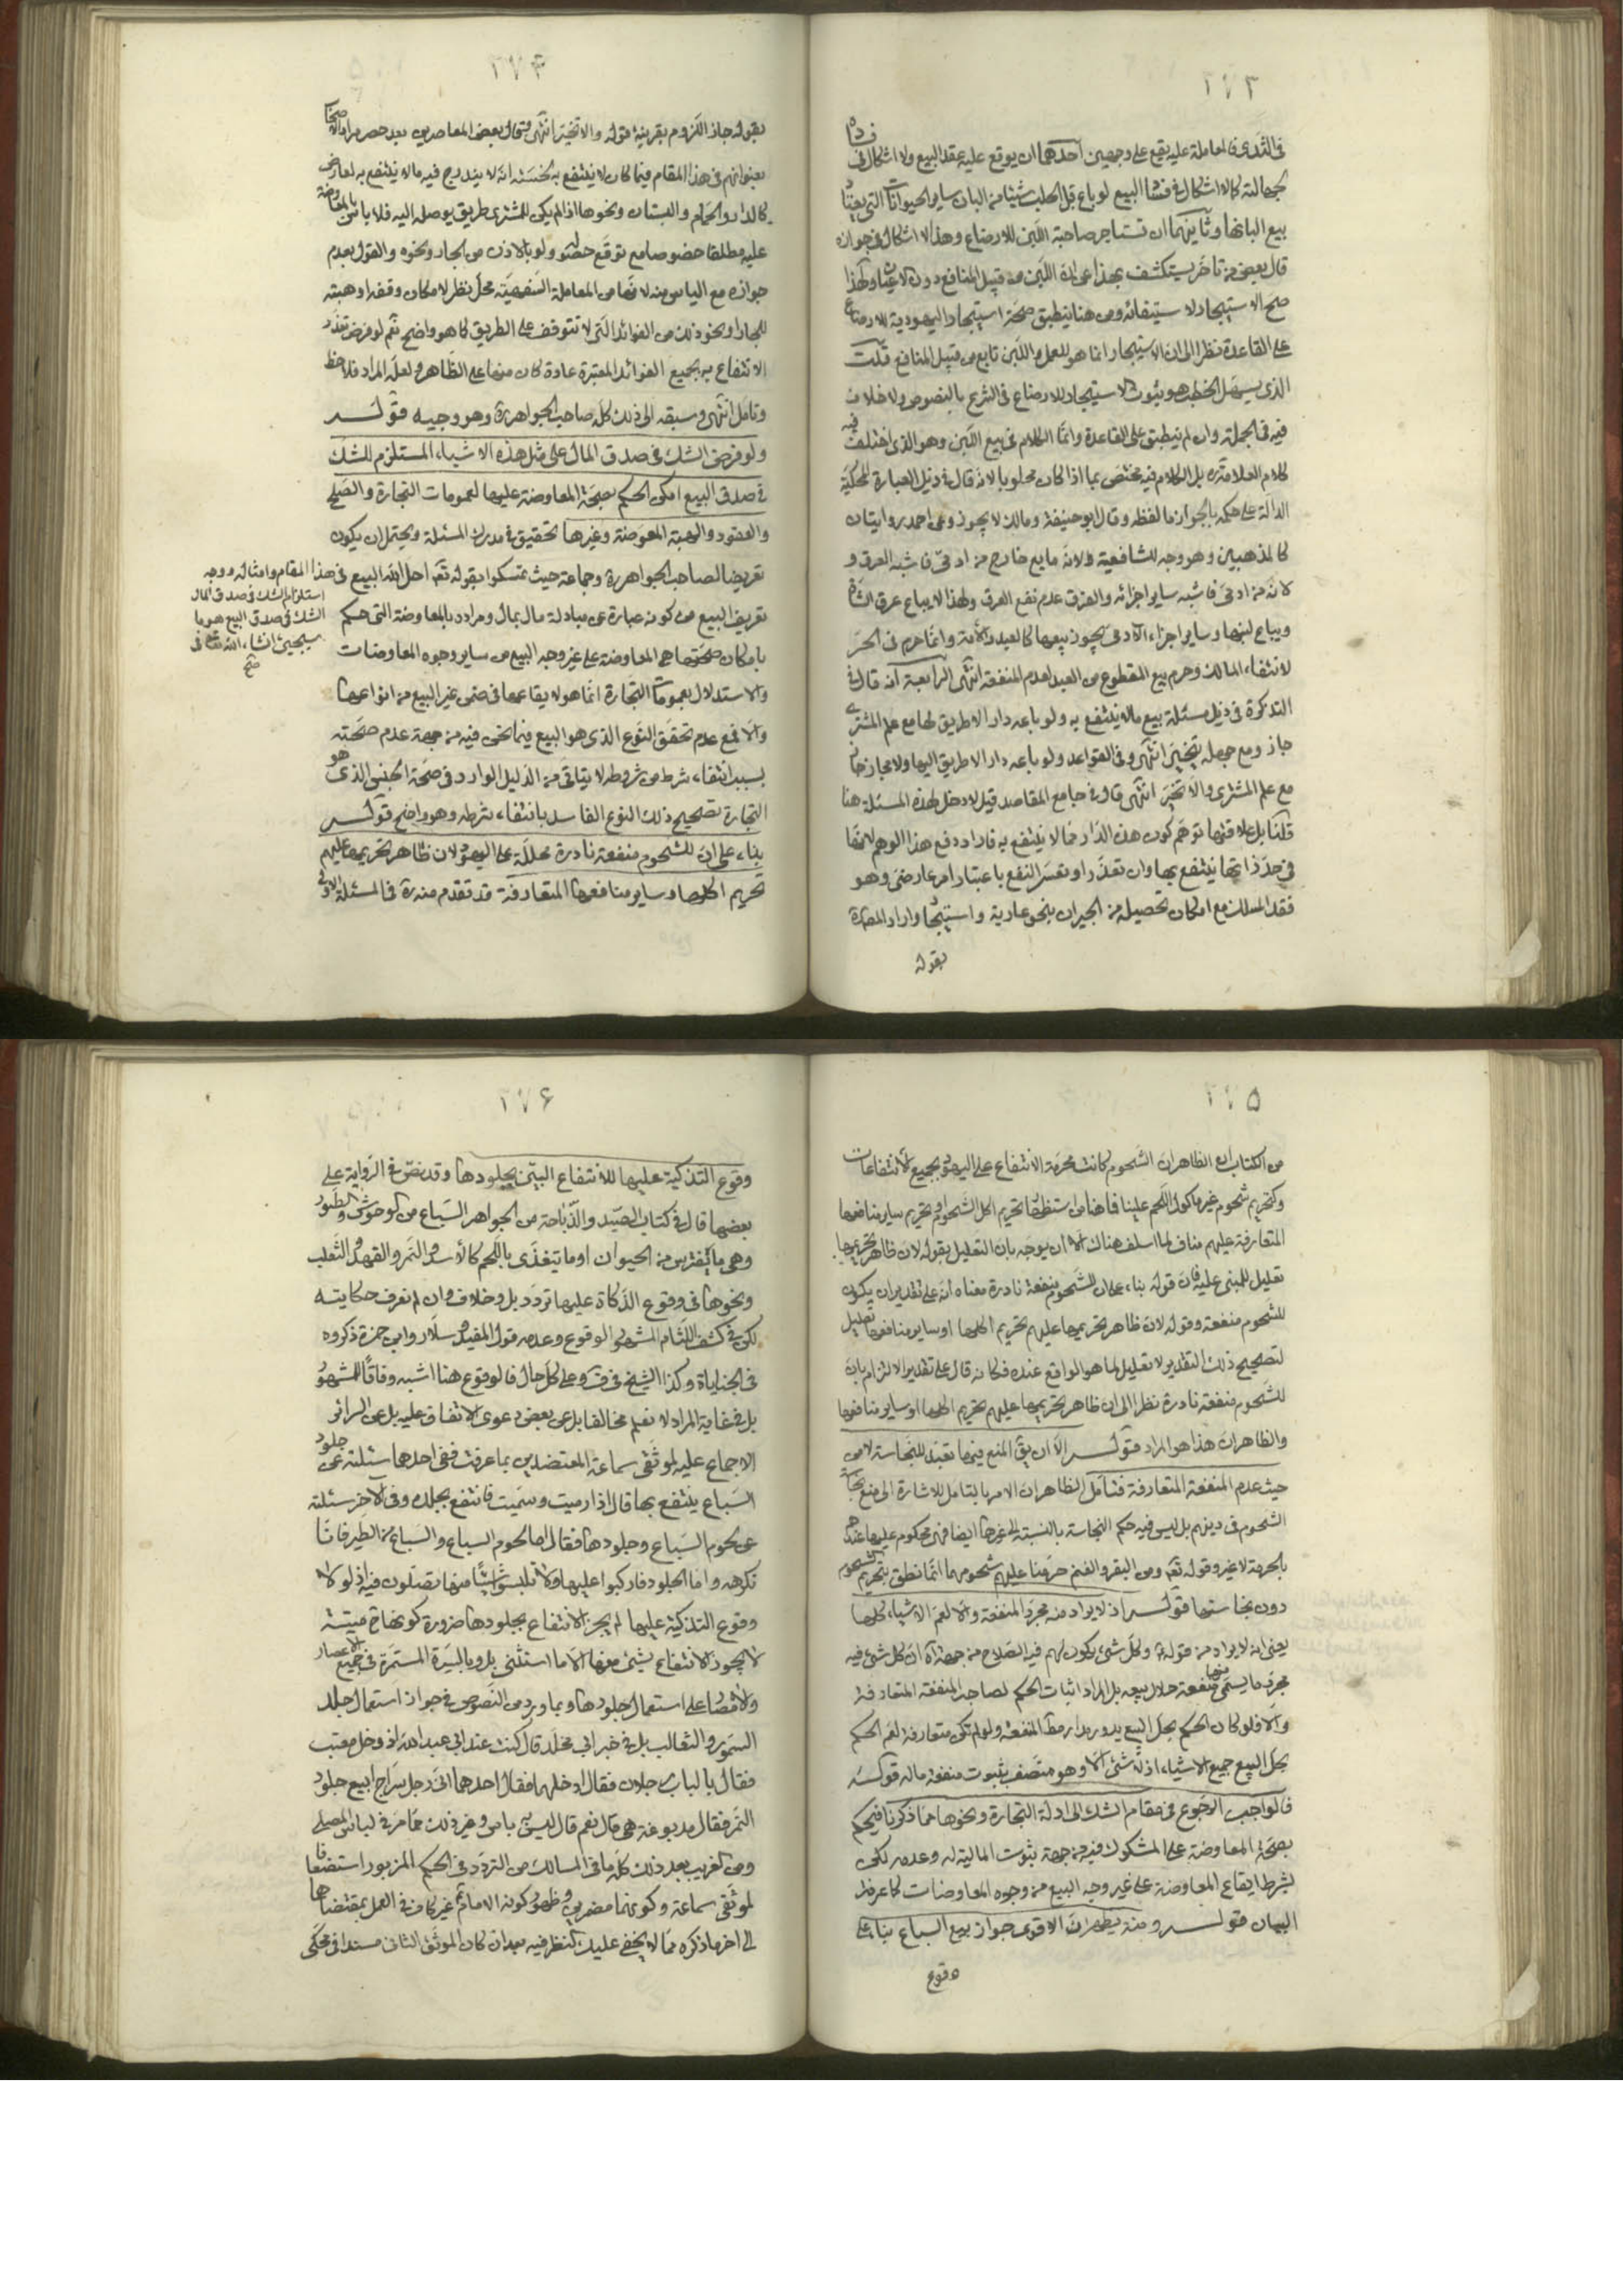 ٢٧٣
في الثدي فالمعاملة عليه يقع على وجهين احدهما ان يوقع عليه عقد البيع ولا اشكال في فساده
لجهالته كما لا اشكال في فساد البيع لو باع قبل الحلب شيئا من البان ساير الحيوانات التي يعتاد
بيع البانها وثانيهما ان تستاجر صاحبة اللبن للارضاع وهذا لا اشكال في جوازه
قال بعض من تاخر يستكشف بهذا عن ان اللبن من قبيل المنافع دون الاعيان ولهذا
صح الاستيجار لاستيفائه ومن هنا ينطبق صحة استيجار اليهودية للارضاع
على القاعدة نظرا الى ان الاستيجار انما هو للعمل واللبن تابع من قبيل المنافع قلت
الذي يسهل الخطب هو ثبوت الاستيجار للارضاع في الشرع بالنصوص ولا خلاف
فيه في الجملة وان لم ينطبق على القاعدة وانما الكلام في بيع اللبن وهو الذي اختلف فيه
كلام العلامة ره بل الكلام فيه مختص بما اذا كان محلوبا لانه قال في ذيل العبارة المحكية
الدالة على حكمه بالجواز ما لفظه وقال ابو حنيفة ومالك لا يجوز وعن احمد روايتان
كالمذهبين وهو وجه للشافعية ولانه مايع خارج من ادمي فاشبه العرق و
لانه من ادمي فاشبه ساير اجزائه والفرق عدم نفع العرق ولهذا لا يباع عرق الشاة
ويباع لبنها وساير اجزاء الادمي يجوز بيعها كالعبد والامة وانما حرم في الحر
لانتفاء المالك وحرم بيع المقطوع من العبد لعدم المنفعة انتهى الرابعة انه قال في
التذكرة في ذيل مسئلة بيع ما لا ينتفع به ولو باعه دارا لا طريق لها مع علم المشتري
جاز ومع جهله يتخير انتهى وفي القواعد ولو باعه دارا لا طريق اليها ولا مجاز جاز
مع علم المشتري والا تخير انتهى قال في جامع المقاصد قيل لا دخل لهذه المسئلة هنا
قلنا بل علاقتها توهم كون هذه الدار مما لا ينتفع به فاراد دفع هذا الوهم لانها
في حد ذاتها ينتفع بها وان تعذر او تعسر النفع باعتبار امر عارضي وهو
فقد المسلك مع امكان تحصيله من الجيران بنحو عارية واستيجار واراد المصنف
بقوله
٢٧۴
بقوله جاز اللزوم بقرينة قوله والا تخير انتهى وقال بعض المعاصرين بعد حصر مراد الاصحاب
بعنوانهم في هذا المقام فيما كان لا ينتفع به لخسته انه لا يندرج فيه ما لا ينتفع به لعارض
كالدار والحمام والبستان ونحوها اذا لم يكن للمشتري طريق يوصله اليه فلا باس بالمعاوضة
عليه مطلقا خصوصا مع توقع حصوله ولو بالاذن من الجار ونحوه والقول بعدم
جوازه مع الياس منه لانها من المعاملة السفهية محل نظر لامكان وقفه او هبته
للجار او نحو ذلك من الفوائد التي لا تتوقف على الطريق كما هو واضح نعم لو فرض تعذر
الانتفاع به بجميع الفوائد المعتبرة عادة كان منها على الظاهر ولعله المراد فلاحظ
وتامل انتهى وسبقه الى ذلك كله صاحب الجواهر ره وهو وجيه قوله
ولو فرض الشك في صدق المال على مثل هذه الاشياء المستلزم للشك
في صدق البيع امكن الحكم بصحة المعاوضة عليها لعمومات التجارة والصلح
والعقود والهبة المعوضة وغيرها تحقيق في مدرك المسئلة ويحتمل ان يكون
تعريضا لصاحب الجواهر ره وجماعة حيث تمسكوا بقوله تعالى احل الله البيع في هذا المقام وامثاله ووجه
استلزام الشك في صدق المال
الشك في صدق البيع هو ما
سيجيئ انشاء الله تعالى في
صح
تعريف البيع من كونه عبارة عن مبادلة مال بمال ومراده بالمعاوضة التي حكم
بامكان صحتها هي المعاوضة على غير وجه البيع من ساير وجوه المعاوضات
والاستدلال بعمومات التجارة انما هو لايقاعها في ضمن غير البيع من انواعها
والا فمع عدم تحقق النوع الذي هو البيع فيما نحن فيه من جهة عدم صحته
بسبب انتفاء شرط من شروطه لا يتاتى من الدليل الوارد في صحة الجنس الذي هو
التجارة تصحيح ذلك النوع الفاسد بانتفاء شرطه وهو واضح قوله
بناء على ان للشحوم منفعة نادرة محللة على اليهود لان ظاهر تحريمها عليهم
تحريم اكلها وساير منافعها المتعارفة قد تقدم منه ره في المسئلة الاولى
٢٧۵
من الكتاب ان الظاهر ان الشحوم كانت محرمة الانتفاع على اليهود بجميع الانتفاعات
وكتحريم شحوم غير ماكول اللحم علينا فما هنا من استظهار تحريم اكل الشحوم وتحريم ساير منافعها
المتعارفة عليهم مناف لما اسلفه هناك الا ان يوجه بان التعليل بقوله لان ظاهر تحريمها
تعليل للمبنى عليه فان قوله بناء على ان للشحوم منفعة نادرة معناه انه على تقدير ان يكون
للشحوم منفعة وقوله لان ظاهر تحريمها عليهم تحريم اكلها او ساير منافعها تعليل
لتصحيح ذلك التقدير لا تعليل لما هو الواقع عنده فكانه قال على تقدير الالتزام بان
للشحوم منفعة نادرة نظرا الى ان ظاهر تحريمها عليهم تحريم اكلها او ساير منافعها
والظاهر ان هذا هو المراد قوله الا ان يق المنع فيهما تعبد للنجاسة لا من
حيث عدم المنفعة المتعارفة فتامل الظاهر ان الامر بالتامل للاشارة الى منع نجاسة
الشحوم في دينهم بل ليس فيه حكم النجاسة بالنسبة الى غيرها ايضا فهي محكوم عليها عندهم
بالحرمة لا غير وقوله تعالى ومن البقر والغنم حرمنا عليهم شحومهما انما نطق بتحريم الشحوم
دون نجاستها قوله اذ لا يراد منه مجرد المنفعة والا لعم الاشياء كلها
يعني انه لا يراد من قوله ع وكل شئ يكون لهم فيه الصلاح من جهة اه ان كل شئ فيه
مجرد ما يسمى منها منفعة حلال بيعه بل المراد اثبات الحكم لصاحب المنفعة المتعارفة
والا فلو كان الحكم بحل البيع يدور مدار مط المنفعة ولو لم تكن متعارفة لعم الحكم
بحل البيع جميع الاشياء اذ لا شئ الا وهو متصف بثبوت منفعة ماله قوله
فالواجب الرجوع في مقام الشك الى ادلة التجارة ونحوها مما ذكرنا فيحكم
بصحة المعاوضة على المشكوك فيه من جهة ثبوت المالية له وعدمه لكن
بشرط ايقاع المعاوضة على غير وجه البيع من وجوه المعاوضات كما عرفت
البيان قوله ومنه يظهر ان الاقوى جواز بيع السباع بناء على
وقوع
٢٧۶
وقوع التذكية عليها للانتفاع البين بجلودها وقد نص في الرواية على
بعضها قال في كتاب الصيد والذباحة من الجواهر السباع من الوحوش والطيور
وهي ما يفترس من الحيوان او ما يتغذى باللحم كالاسد والنمر والفهد والثعلب
ونحوها في وقوع الذكاة عليها تردد بل وخلاف وان لم نعرف حكايته
لكن في كشف اللثام المشهور الوقوع وعدمه قول المفيد وسلار وابن حمزة ذكروه
في الجنايات وكذا الشيخ في ف وعلى كل حال فالوقوع هنا اشبه وفاقا للمشهور
بل في غاية المراد لا نعلم مخالفا بل عن بعض دعوى الاتفاق عليه بل عن السرائر
الاجماع عليه لموثقي سماعة المعتضدين بما عرفت ففي احدهما سئلته عن جلود
السباع ينتفع بها قال اذا رميت وسميت فانتفع بجلده وفي الاخر سئلته
عن لحوم السباع وجلودها فقال اما لحوم السباع والسباع من الطير فانا
نكرهه واما الجلود فاركبوا عليها ولا تلبسوا شيئا منها تصلون فيه اذ لولا
وقوع التذكية عليها لم يجز الانتفاع بجلودها ضرورة كونها ح ميتة
لا يجوز الانتفاع بشئ منها الا ما استثنى بل وبالسيرة المستمرة في جميع الاعصار
والامصار على استعمال جلودها وبما ورد من النصوص في جواز استعمال جلد
السمور والثعالب بل في خبر ابي مخلد قال كنت عند ابي عبد الله اذ دخل معتب
فقال بالباب رجلان فقال ادخلهما فقال احدهما اني رجل سراج ابيع جلود
النمر فقال مدبوغة هي قال نعم قال ليس به باس وغير ذلك مما مر في لباس المصلي
ومن الغريب بعد ذلك كله ما في المسالك من التردد في الحكم المزبور استضعافا
لموثقي سماعة وكونهما مضمرين وظهور كونه الامام ع غير كاف في العمل بمقتضاها
الى اخر ما ذكره مما لا يخفى عليك النظر فيه بعد ان كان الموثق الثاني مسندا في محكي